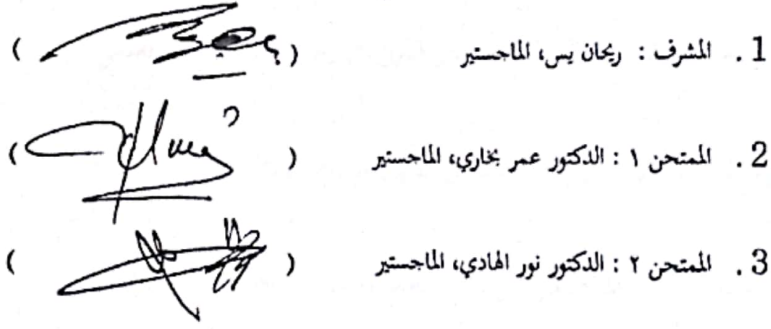 1. المشرف : ريحان يس، الماجستير ( )
2. الممتحن ١ : الدكتور عمر بخاري، الماجستير ( )
3. الممتحن ٢ : الدكتور نور الهادي، الماجستير ( )